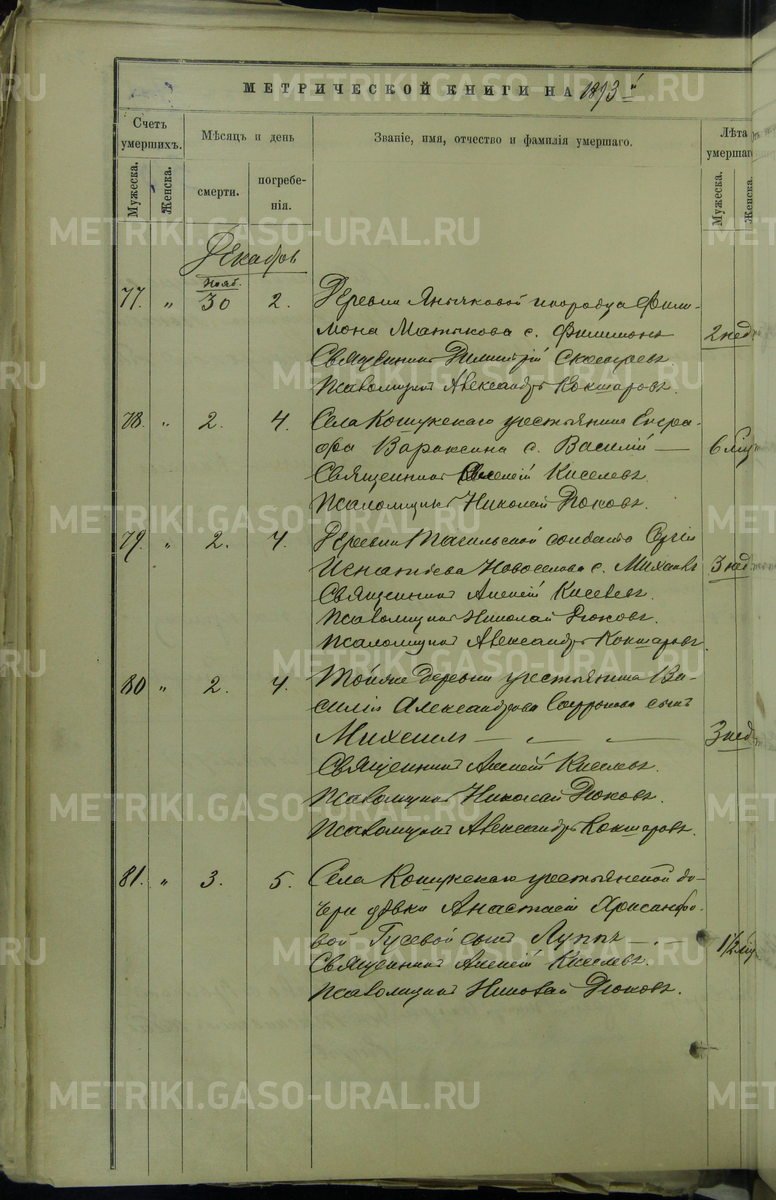 МЕТРИЧЕСКОЙ КНИГИ НА 1893й
Счетъ умершихъ.
Мѣсяцъ и день
Званіе, имя, отчество и фамилія умершаго.
Лѣта умершаго
Мужеска.
Женска.
смерти.
погребенія.
Мужеска.
Женска.
Декабрь
Нояб.
77. " 30 2. Деревни Янычковой инородца Фили-
мона Матыкова с. Филимонъ 2 нед
Священникъ Димитрій
Псаломщикъ Александръ Кокшаровъ.
78. " 2. 4. Села Кошукскаго крестьянина Евгра-
фа Вараксина с. Василій — 6 мѣс
Священникъ Алексій Киселевъ.
Псаломщикъ Николай Дюковъ.
79. " 2. 4. Деревни Тагильской солдата Сергія
Игнатьева Новоселова с. Михаилъ 3 нед
Священникъ Алексій Киселевъ.
Псаломщикъ Николай Дюковъ.
Псаломщикъ Александръ Кокшаровъ.
80 " 2. 4. Тойже деревни крестьянина Ва-
силія Александрова сынъ
Михаилъ — 3 нед
Священникъ Алексій Киселевъ.
Псаломщикъ Николай Дюковъ.
Псаломщикъ Александръ Кокшаровъ.
81. " 3. 5. Села Кошукскаго крестьянской до-
чери дѣвки Анастасіи Хрисанфо-
вой Гусевой сынъ Луппъ — 1½ мѣс
Священникъ Алексій Киселевъ.
Псаломщикъ Николай Дюковъ.
METRIKI.GASO-URAL.RU